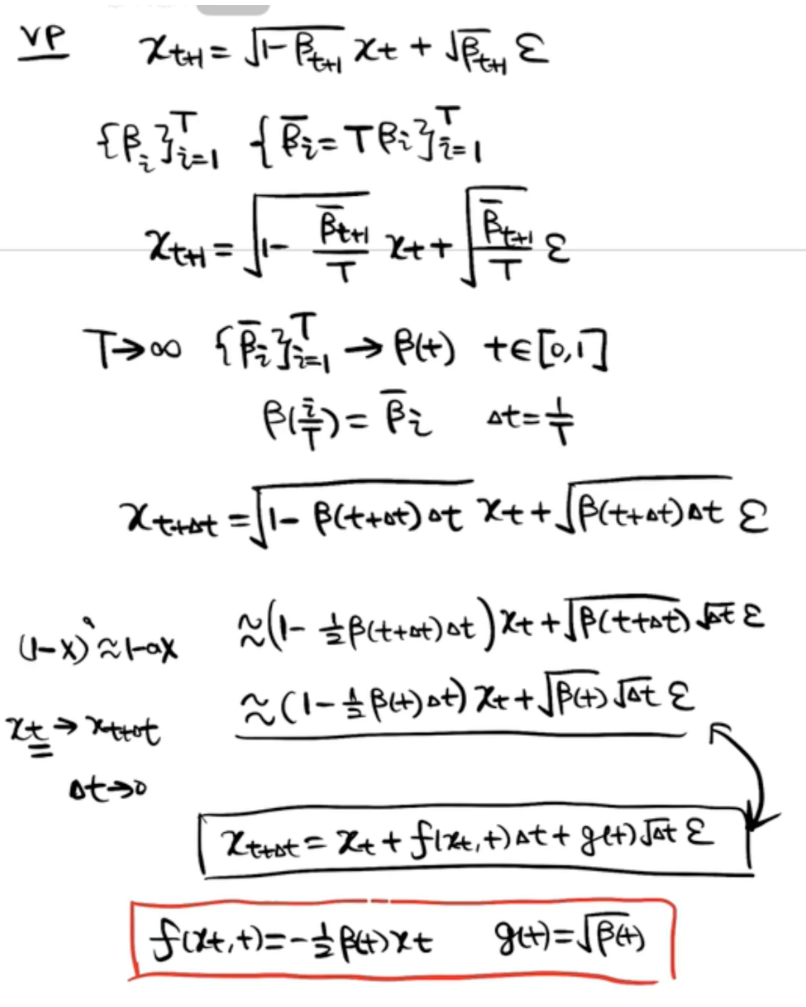 VP
x_{t+1} = √(1-β_{t+1}) x_t + √(β_{t+1}) ε
{β_i}_{i=1}^T {β̄_i = Tβ_i}_{i=1}^T
x_{t+1} = √(1 - β̄_{t+1}/T) x_t + √(β̄_{t+1}/T) ε
T→∞ {β̄_i}_{i=1}^T → β(t) t∈[0,1]
β(i/T) = β̄_i Δt = 1/T
x_{t+Δt} = √(1 - β(t+Δt)Δt) x_t + √(β(t+Δt)Δt) ε
(1-x)^a ≈ 1-ax ≈ (1 - ½β(t+Δt)Δt) x_t + √(β(t+Δt)) √Δt ε
x_t → x_{t+Δt} ≈ (1 - ½β(t)Δt) x_t + √(β(t)) √Δt ε
Δt→0
x_{t+Δt} = x_t + f(x_t,t)Δt + g(t)√Δt ε
f(x_t,t) = -½β(t)x_t g(t) = √(β(t))